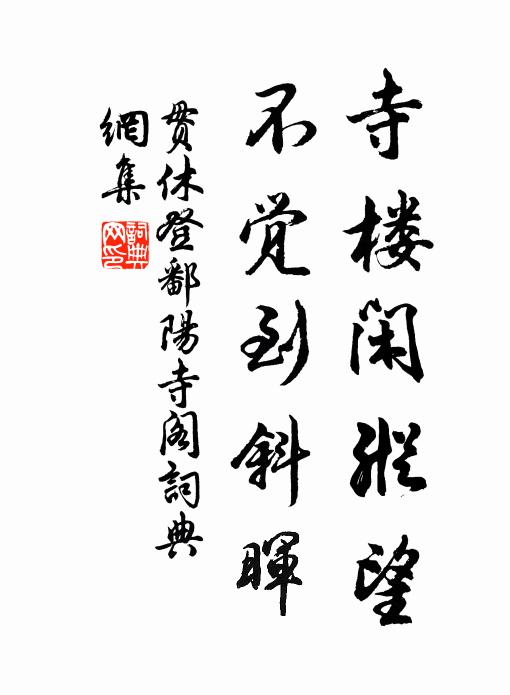 寺楼闲纵望
不觉到斜暉
贯休登鄱陽寺阁詞典
網集
詞典
网印